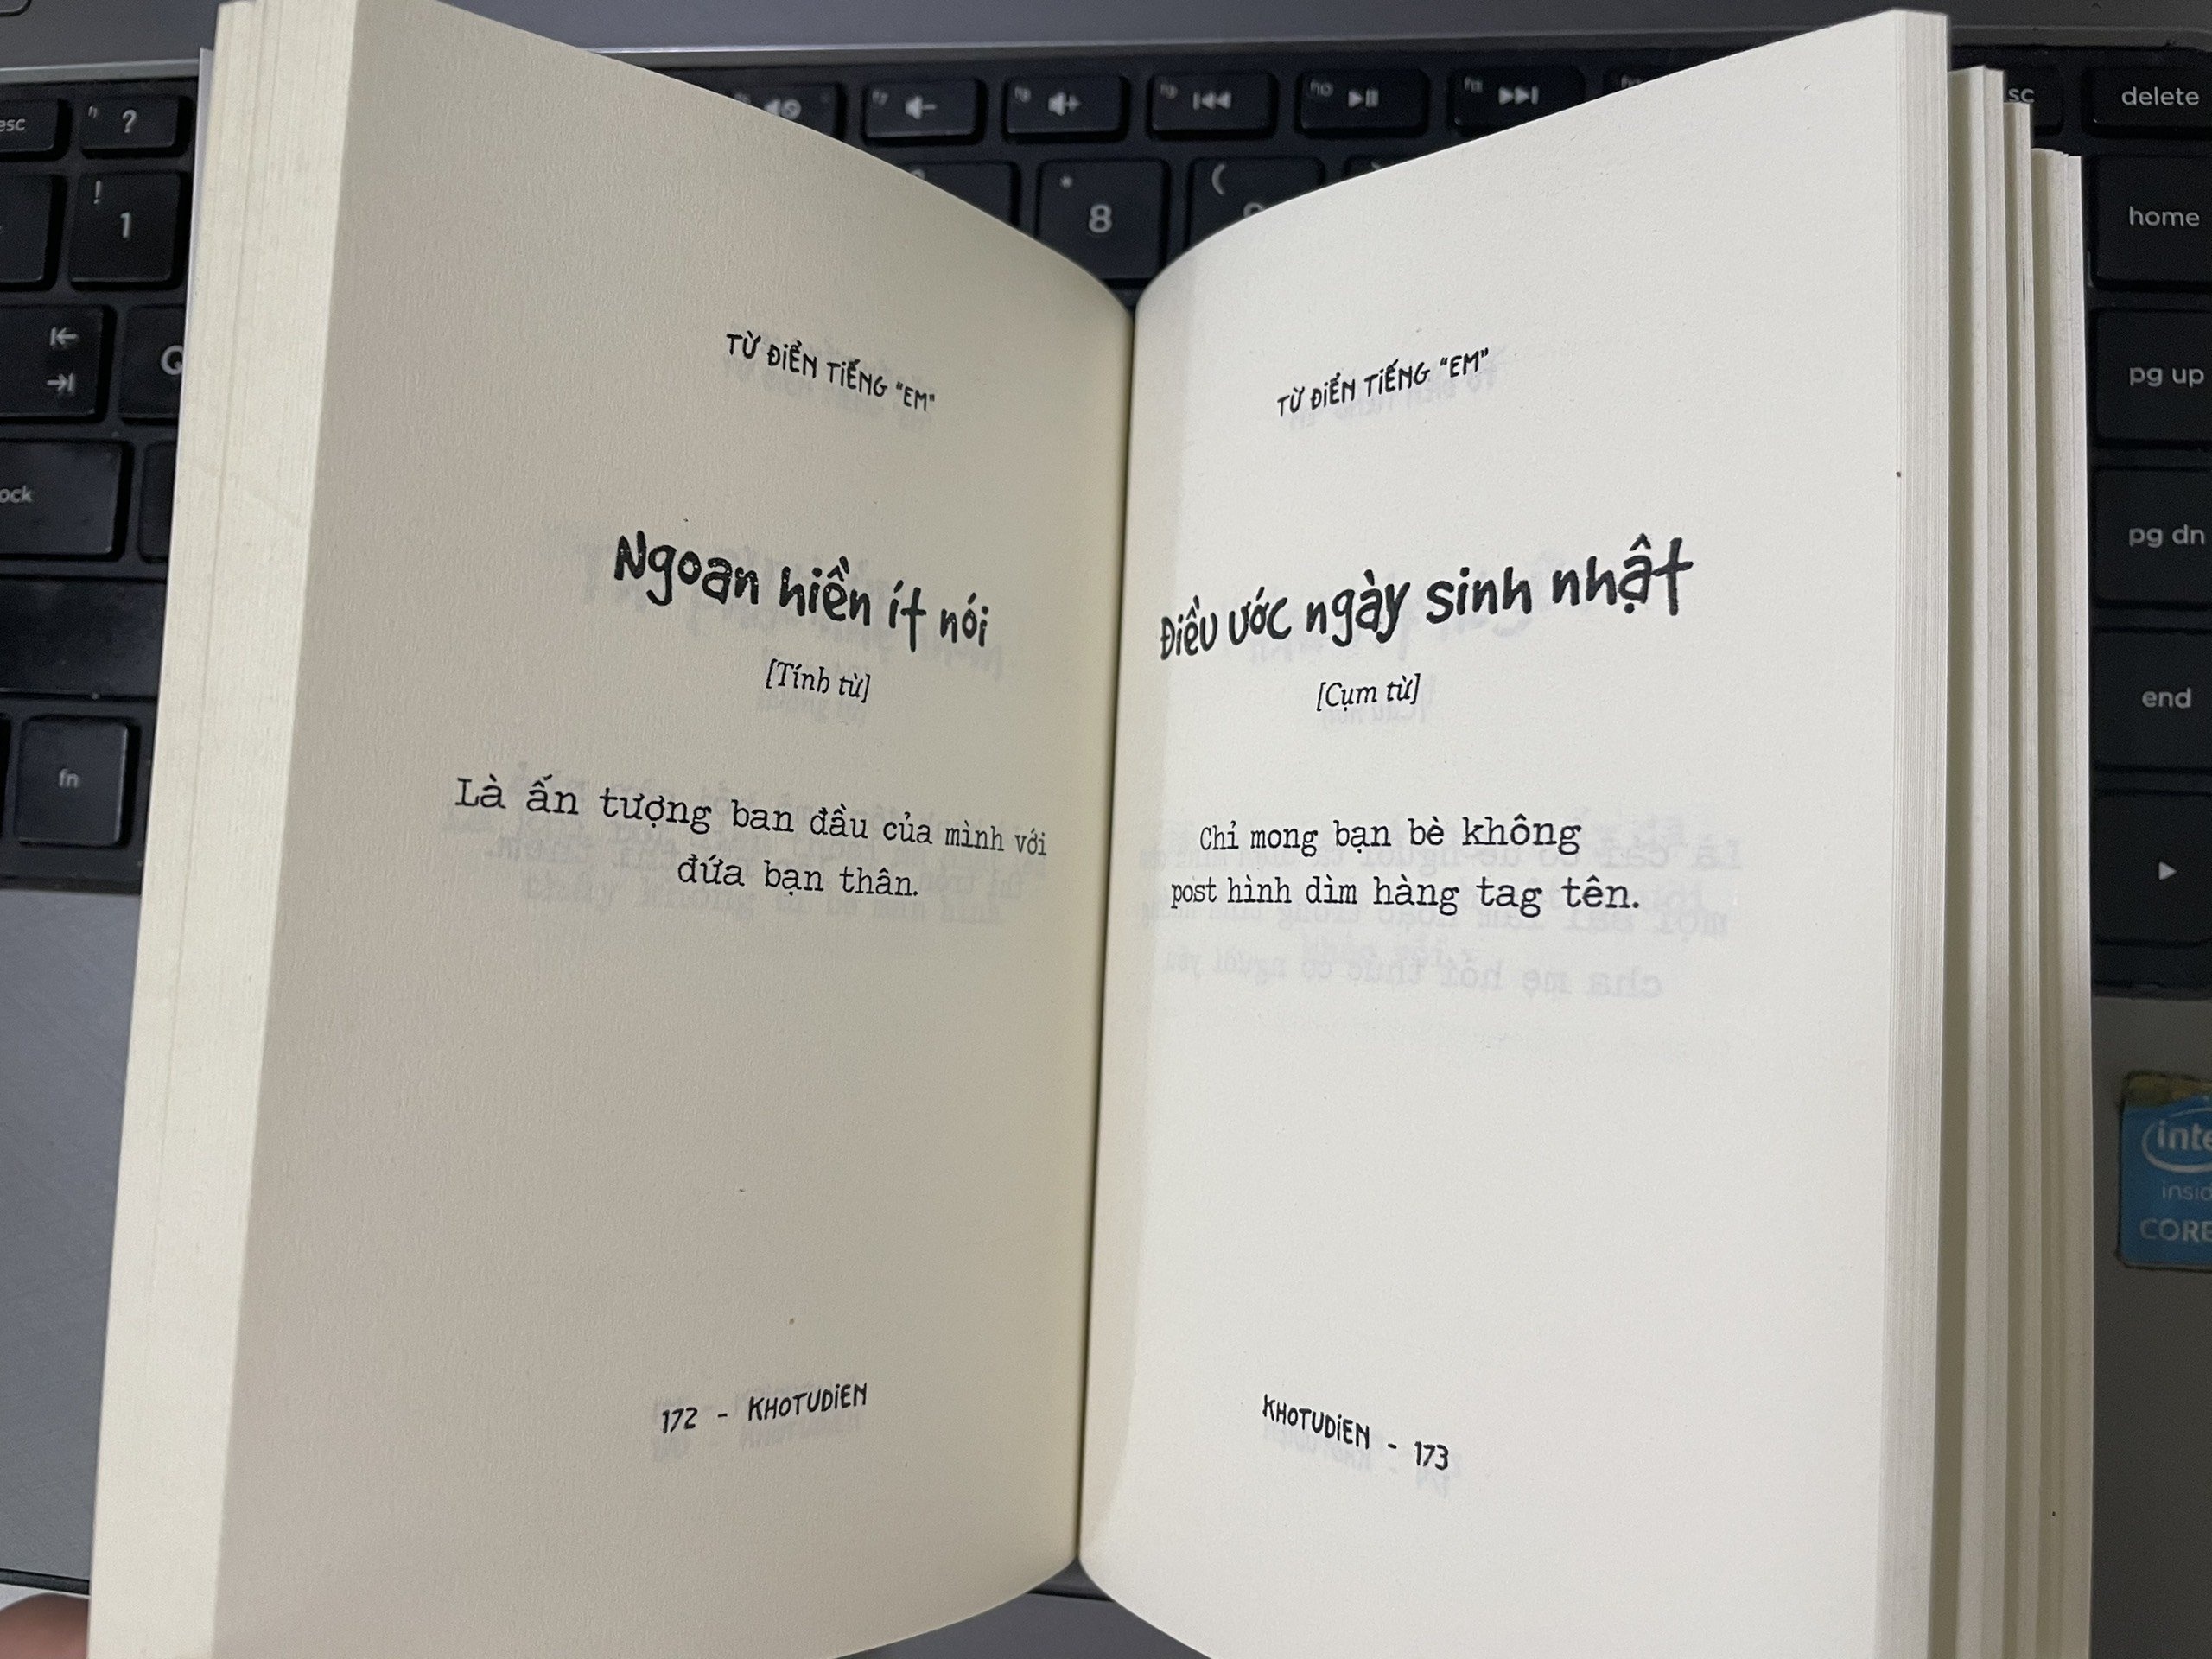 TỪ ĐIỂN TIẾNG "EM"
Ngoan hiền ít nói
[Tính từ]
Là ấn tượng ban đầu của mình với
đứa bạn thân.
172 - KHOTUDIEN
TỪ ĐIỂN TIẾNG "EM"
Điều ước ngày sinh nhật
[Cụm từ]
Chỉ mong bạn bè không
post hình dìm hàng tag tên.
KHOTUDIEN - 173
esc
?
!
1
Q
fn
*
8
(
delete
home
pg up
pg dn
end